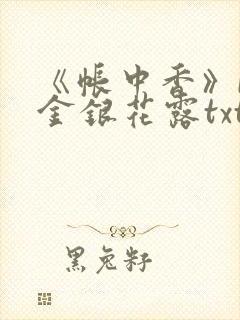 《帐中香》
金银花露txt
黑兔籽